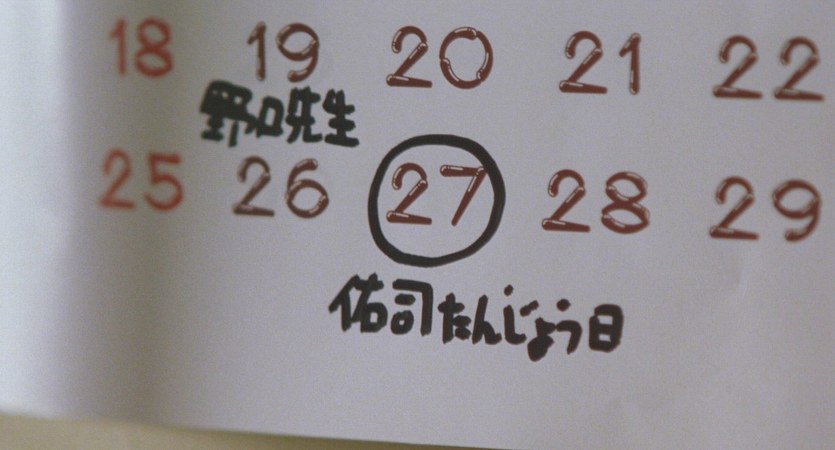 18 19 20 21 22
野口先生
25 26 27 28 29
佑司たんじょう日